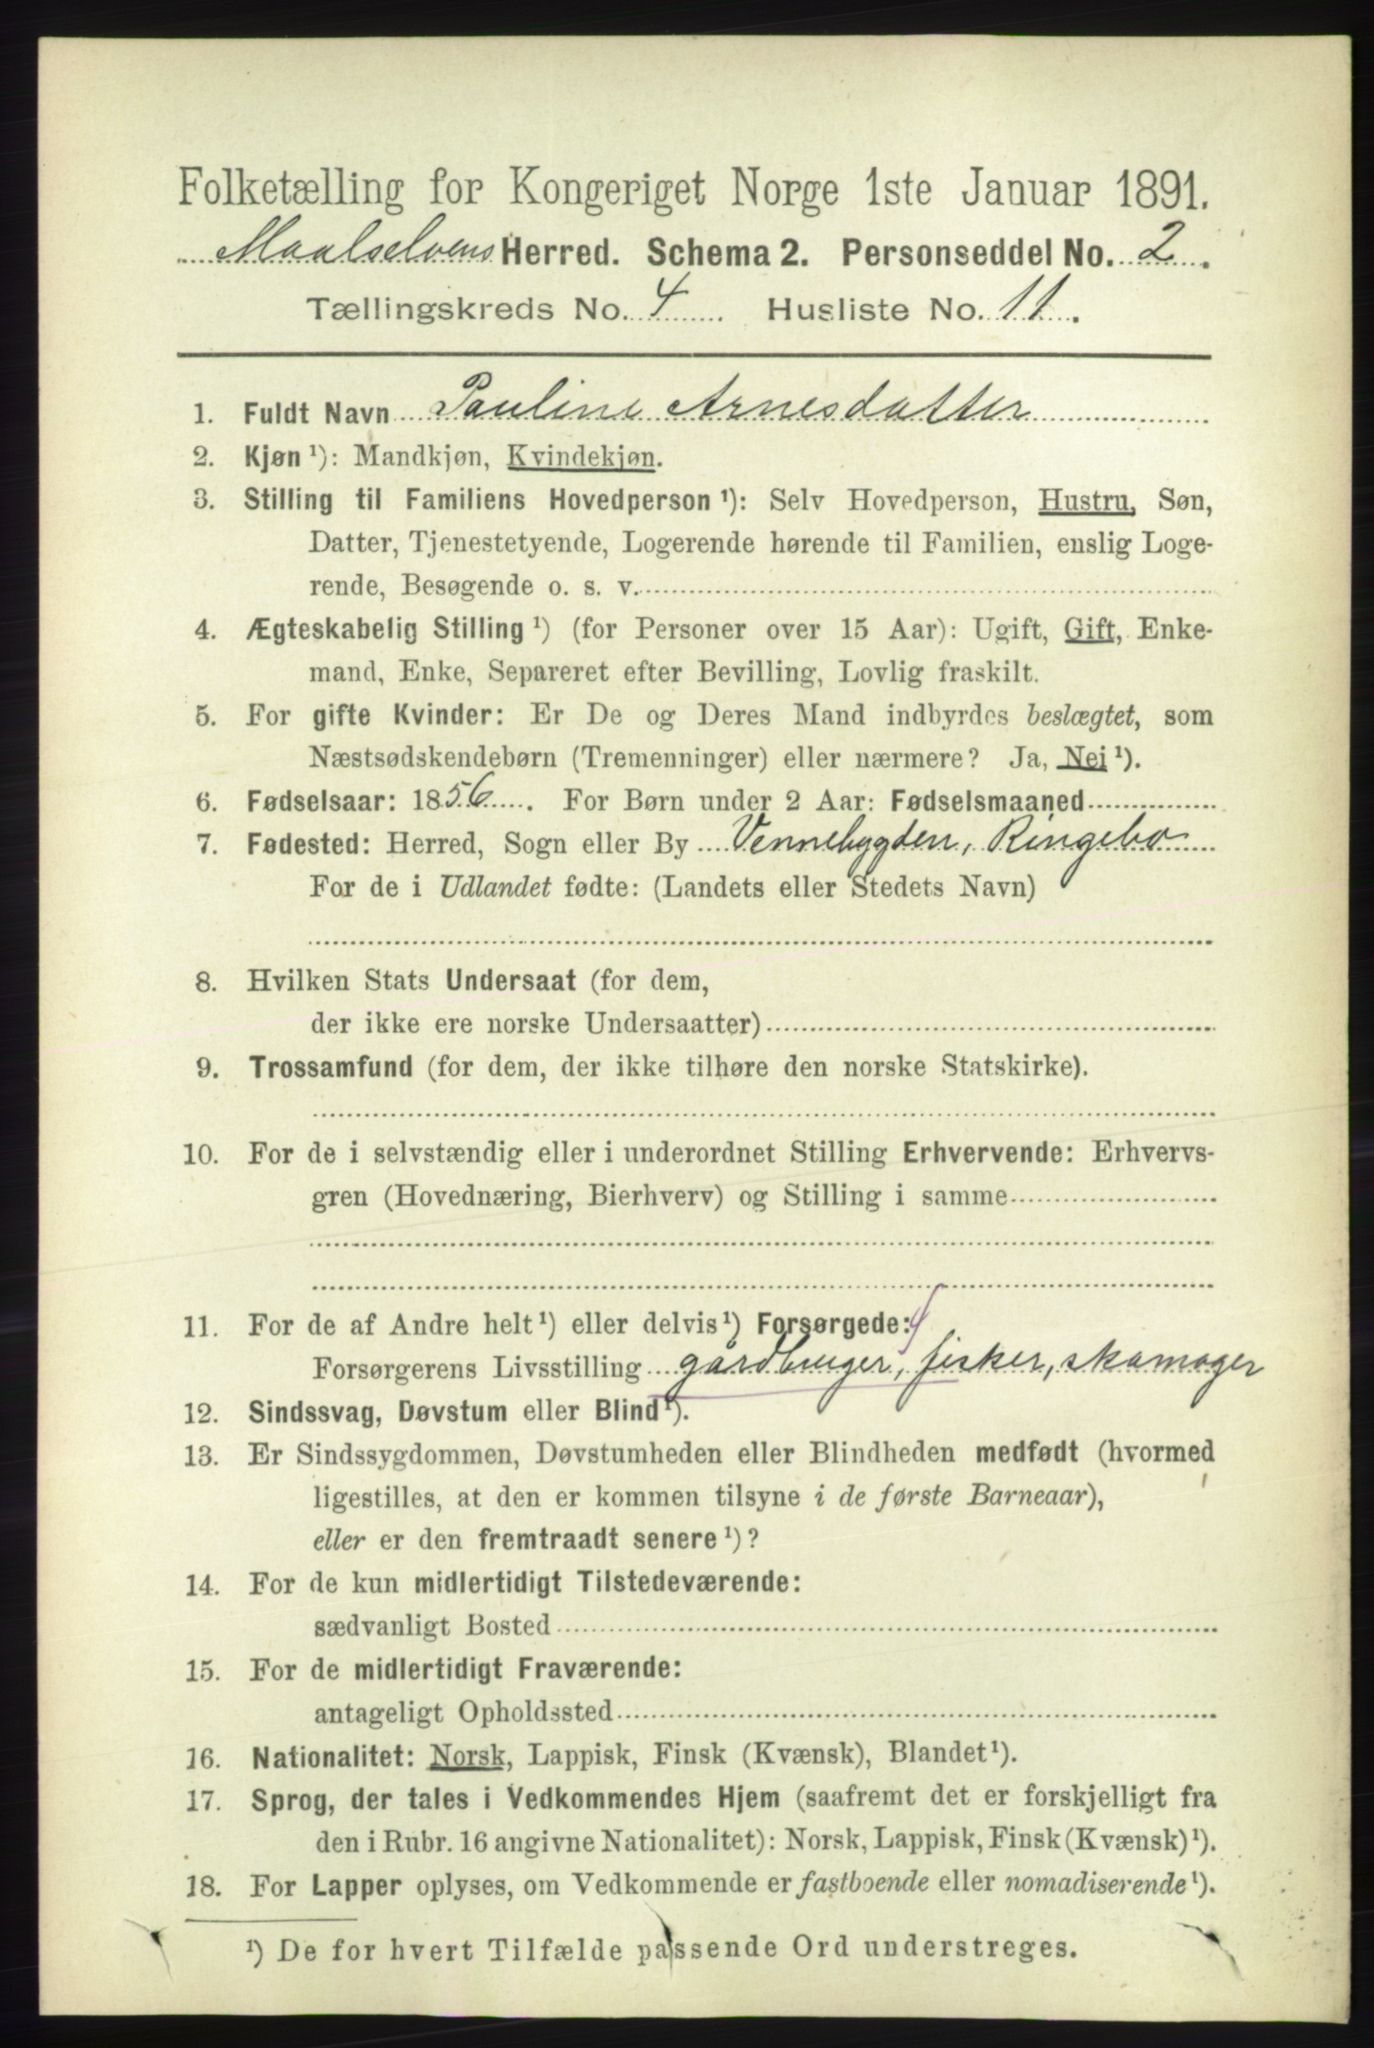 Folketælling for Kongeriget Norge 1ste Januar 1891.
Maalselvens Herred. Schema 2. Personseddel No. 2.
Tællingskreds No. 4 Husliste No. 11.
1. Fuldt Navn Pauline Arnesdatter
2. Kjøn ¹): Mandkjøn, Kvindekjøn.
3. Stilling til Familiens Hovedperson ¹): Selv Hovedperson, Hustru, Søn,
Datter, Tjenestetyende, Logerende hørende til Familien, enslig Loge-
rende, Besøgende o. s. v.
4. Ægteskabelig Stilling ¹) (for Personer over 15 Aar): Ugift, Gift, Enke-
mand, Enke, Separeret efter Bevilling, Lovlig fraskilt.
5. For gifte Kvinder: Er De og Deres Mand indbyrdes beslægtet, som
Næstsødskendebørn (Tremenninger) eller nærmere? Ja, Nei ¹).
6. Fødselsaar: 1856. For Børn under 2 Aar: Fødselsmaaned
7. Fødested: Herred, Sogn eller By Vennebygden, Ringebo
For de i Udlandet fødte: (Landets eller Stedets Navn)
8. Hvilken Stats Undersaat (for dem,
der ikke ere norske Undersaatter)
9. Trossamfund (for dem, der ikke tilhøre den norske Statskirke).
10. For de i selvstændig eller i underordnet Stilling Erhvervende: Erhvervs-
gren (Hovednæring, Bierhverv) og Stilling i samme
11. For de af Andre helt ¹) eller delvis ¹) Forsørgede: 4
Forsørgerens Livsstilling gårdbruger, fisker, skomager
12. Sindssvag, Døvstum eller Blind ¹).
13. Er Sindssygdommen, Døvstumheden eller Blindheden medfødt (hvormed
ligestilles, at den er kommen tilsyne i de første Barneaar),
eller er den fremtraadt senere ¹)?
14. For de kun midlertidigt Tilstedeværende:
sædvanligt Bosted
15. For de midlertidigt Fraværende:
antageligt Opholdssted
16. Nationalitet: Norsk, Lappisk, Finsk (Kvænsk), Blandet ¹).
17. Sprog, der tales i Vedkommendes Hjem (saafremt det er forskjelligt fra
den i Rubr. 16 angivne Nationalitet): Norsk, Lappisk, Finsk (Kvænsk) ¹).
18. For Lapper oplyses, om Vedkommende er fastboende eller nomadiserende ¹).
¹) De for hvert Tilfælde passende Ord understreges.